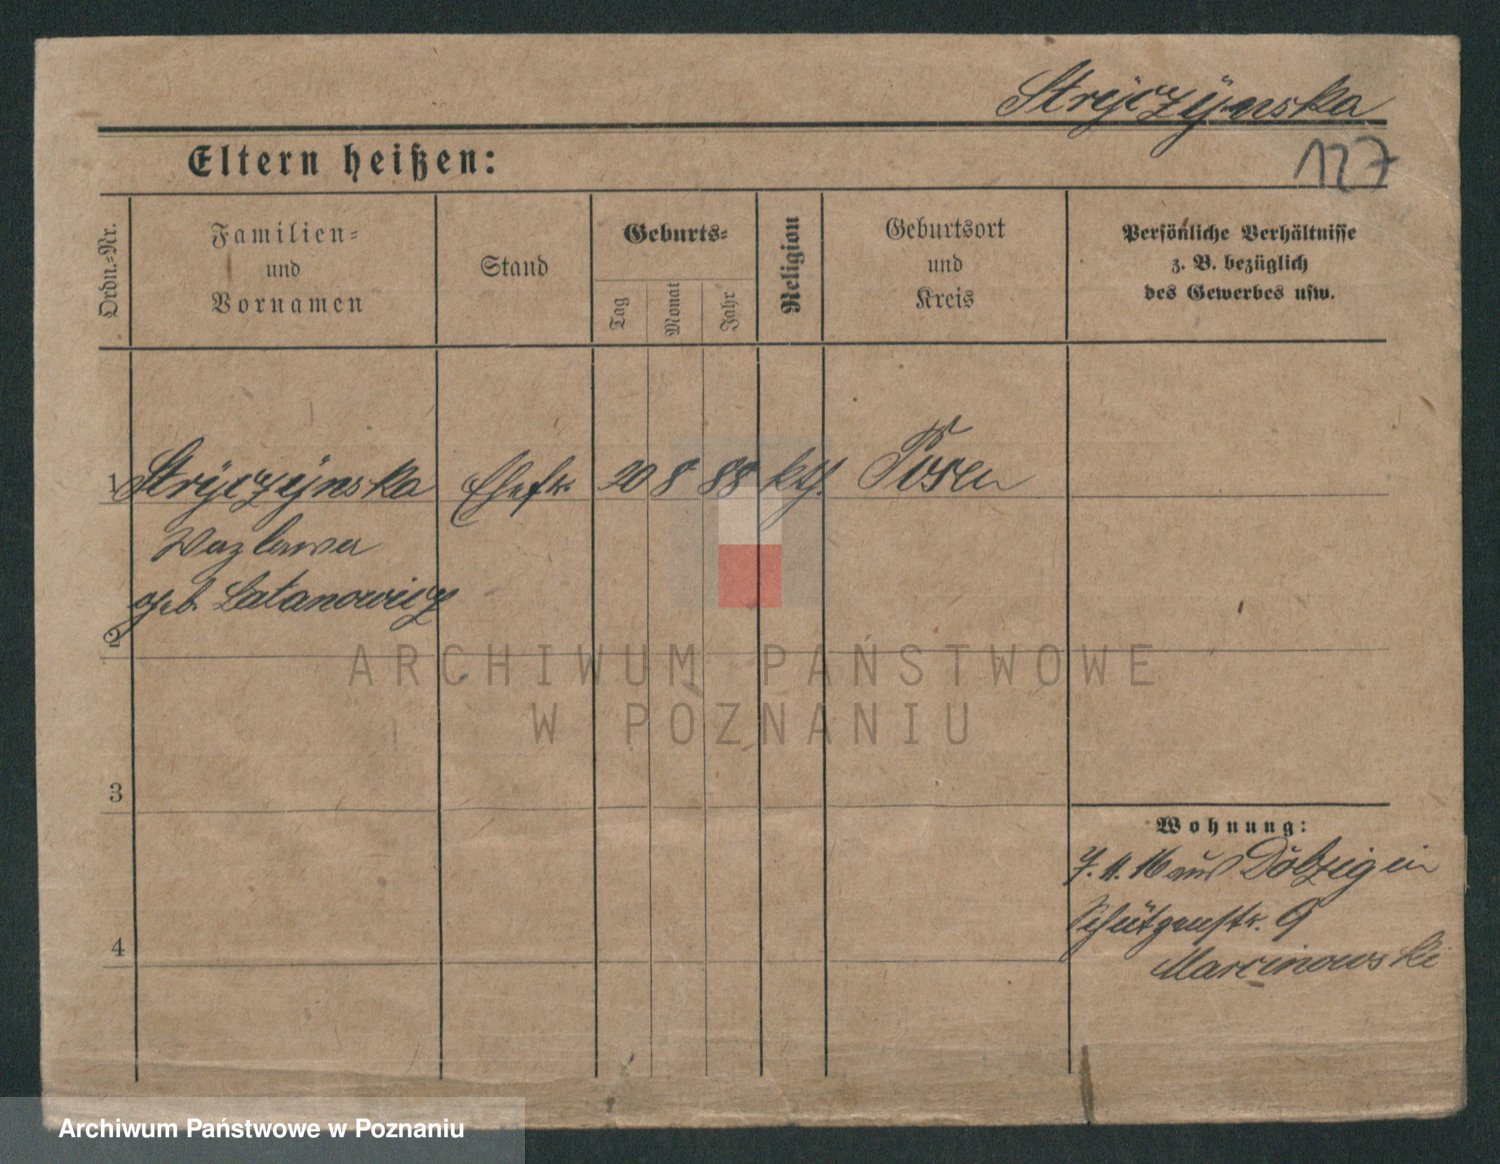 Strÿczÿnska
127
Eltern heißen:
Ordn.-Nr.
Familien-
und
Vornamen
Stand
Geburts-
Tag
Monat
Jahr
Religion
Geburtsort
und
Kreis
Persönliche Verhältnisse
z. B. bezüglich
des Gewerbes usw.
1 Strÿczÿnska Ehefr. 20 8 88 kth. Posen
Wazlawa
geb. Latanowicz
2
ARCHIWUM PAŃSTWOWE
W POZNANIU
3
Wohnung:
7. 11. 16 aus Dolzig in
Schützenstr. 9
Marcinowski
4
Archiwum Państwowe w Poznaniu